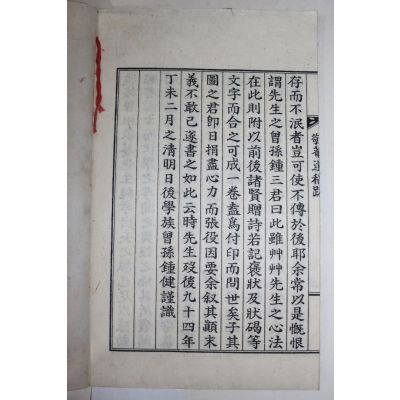 存而不泯者豈可使不傳於後耶余常以是慨恨
謂先生之曾孫鍾三君曰此雖艸艸先生之心法
在此則附以前後諸賢贈詩若記褒狀及狀碣等
文字而合之可成一卷盍爲付印而問世矣子其
圖之君卽日捐盡心力而張役因要余叙其顚末
義不敢已遂書之如此云時先生歿後九十四年
丁未二月之淸明日後學族曾孫鍾健謹識
敬菴遺稿跋